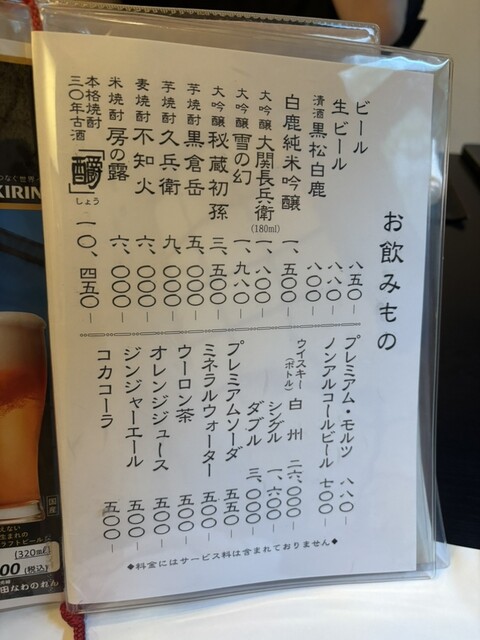 お飲みもの
ビール 八五〇―
生ビール 八八〇―
清酒 黒松白鹿 八〇〇―
白鹿純米吟醸 一、五〇〇―
大吟醸 大関長兵衛(180ml) 一、八〇〇―
大吟醸 雪の幻 一、九八〇―
大吟醸 秘蔵初孫 三、五〇〇―
芋焼酎 黒倉岳 五、〇〇〇―
芋焼酎 久兵衛 九、〇〇〇―
麦焼酎 不知火 六、〇〇〇―
米焼酎 房の露 六、〇〇〇―
本格焼酎
三〇年古酒 「釂」しょう 一〇、四五〇―
プレミアム・モルツ 八八〇―
ノンアルコールビール 七〇〇―
ウイスキー(ボトル) 白州 二六、〇〇〇―
シングル 一、六〇〇―
ダブル 三、〇〇〇―
プレミアムソーダ 五五〇―
ミネラルウォーター 五〇〇―
ウーロン茶 五〇〇―
オレンジジュース 五〇〇―
ジンジャーエール 五〇〇―
コカコーラ 五〇〇―
◆料金にはサービス料は含まれておりません◆
つなぐ世界へ
KIRIN
国産
えない
生まれの
ラフトビールに
(320ml)
00(税込)
田なわのれん